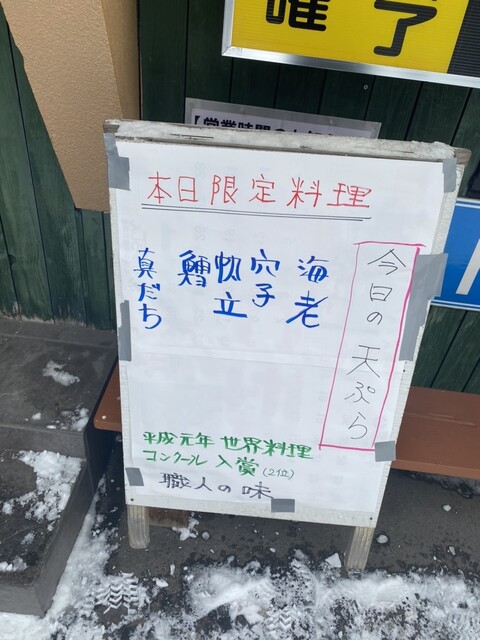 確了
【営業時間のお知らせ
本日限定料理
今日の天ぷら
海老
穴子
帆立
鱈
真だち
平成元年 世界料理
コンクール 入賞(2位)
職人の味